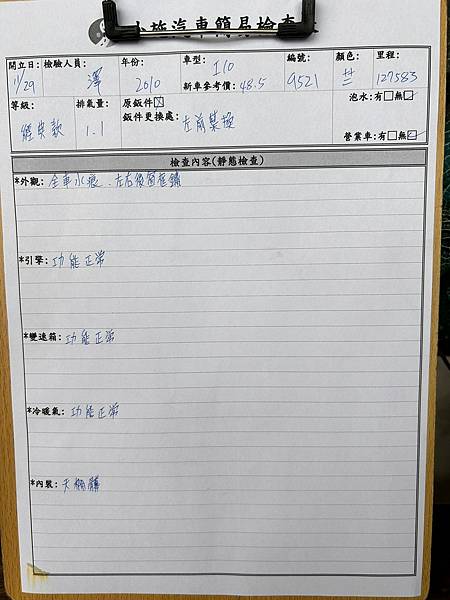 小施汽車簡易檢查
開立日: 檢驗人員: 年份: 車型: I10 編號: 顏色: 里程:
11/29 澤 2010 新車參考價: 48.5 9521 127583
等級: 排氣量: 原鈑件☒ 泡水: 有□無☑
經典款 1.1 鈑件更換處: 左前葉換 營業車: 有□無☑
檢查內容(靜態檢查)
*外觀: 全車水痕、左右後窗框鏽
*引擎: 功能正常
*變速箱: 功能正常
*冷暖氣: 功能正常
*內裝: 天棚髒